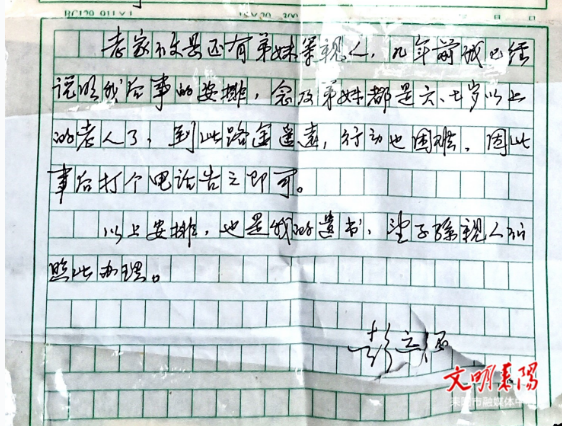 老家耒阳还有弟妹等亲人，九年前我已经
说明我后事的安排，念及弟妹都是六、七岁以上
的老人了，到此路途遥远，行动也困难，因此
事后打个电话告之即可。
以上安排，也是我的遗书，望子孙亲人们
照此办理。
彭
文明耒阳
耒阳市融媒体中心